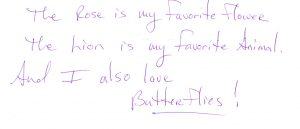 The Rose is my favorite flower
The Lion is my favorite Animal.
And I also love
Butterflies!